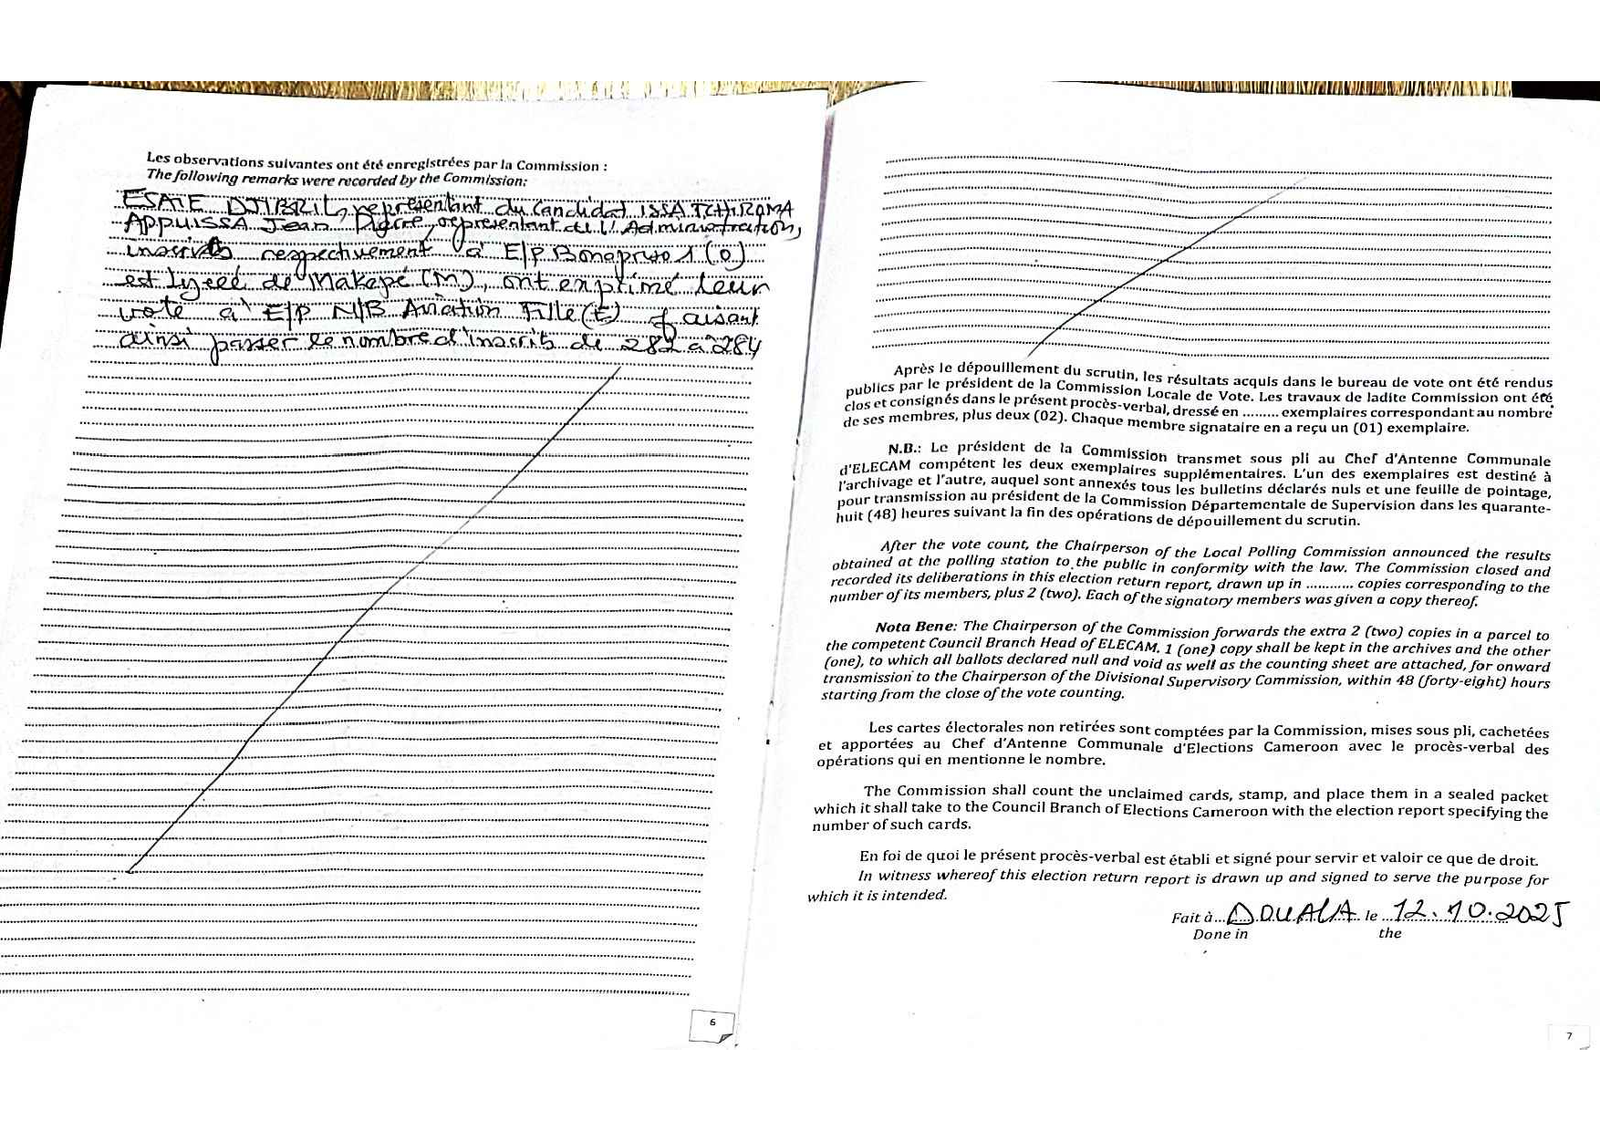 Les observations suivantes ont été enregistrées par la Commission :
The following remarks were recorded by the Commission:
ESAIE DJIBRIL, représentant du candidat ISSA TCHIROMA
APPUISSA Jean Pierre, représentant de l'Administration,
inscrits respectivement à E/P Bonapriso 1 (O)
est lycée de Makepé (M), ont exprimé leur
vote à E/P N/B Aviation Fille (E) faisant
ainsi passer le nombre d'inscrits de 282 à 284
6
Après le dépouillement du scrutin, les résultats acquis dans le bureau de vote ont été rendus
publics par le président de la Commission Locale de Vote. Les travaux de ladite Commission ont été
clos et consignés dans le présent procès-verbal, dressé en ......... exemplaires correspondant au nombre
de ses membres, plus deux (02). Chaque membre signataire en a reçu un (01) exemplaire.
N.B.: Le président de la Commission transmet sous pli au Chef d'Antenne Communale
d'ELECAM compétent les deux exemplaires supplémentaires. L'un des exemplaires est destiné à
l'archivage et l'autre, auquel sont annexés tous les bulletins déclarés nuls et une feuille de pointage,
pour transmission au président de la Commission Départementale de Supervision dans les quarante-
huit (48) heures suivant la fin des opérations de dépouillement du scrutin.
After the vote count, the Chairperson of the Local Polling Commission announced the results
obtained at the polling station to the public in conformity with the law. The Commission closed and
recorded its deliberations in this election return report, drawn up in ............ copies corresponding to the
number of its members, plus 2 (two). Each of the signatory members was given a copy thereof.
Nota Bene: The Chairperson of the Commission forwards the extra 2 (two) copies in a parcel to
the competent Council Branch Head of ELECAM. 1 (one) copy shall be kept in the archives and the other
(one), to which all ballots declared null and void as well as the counting sheet are attached, for onward
transmission to the Chairperson of the Divisional Supervisory Commission, within 48 (forty-eight) hours
starting from the close of the vote counting.
Les cartes électorales non retirées sont comptées par la Commission, mises sous pli, cachetées
et apportées au Chef d'Antenne Communale d'Elections Cameroon avec le procès-verbal des
opérations qui en mentionne le nombre.
The Commission shall count the unclaimed cards, stamp, and place them in a sealed packet
which it shall take to the Council Branch of Elections Cameroon with the election report specifying the
number of such cards.
En foi de quoi le présent procès-verbal est établi et signé pour servir et valoir ce que de droit.
In witness whereof this election return report is drawn up and signed to serve the purpose for
which it is intended.
Fait à... DOUALA le 12.10.2025
Done in the
7